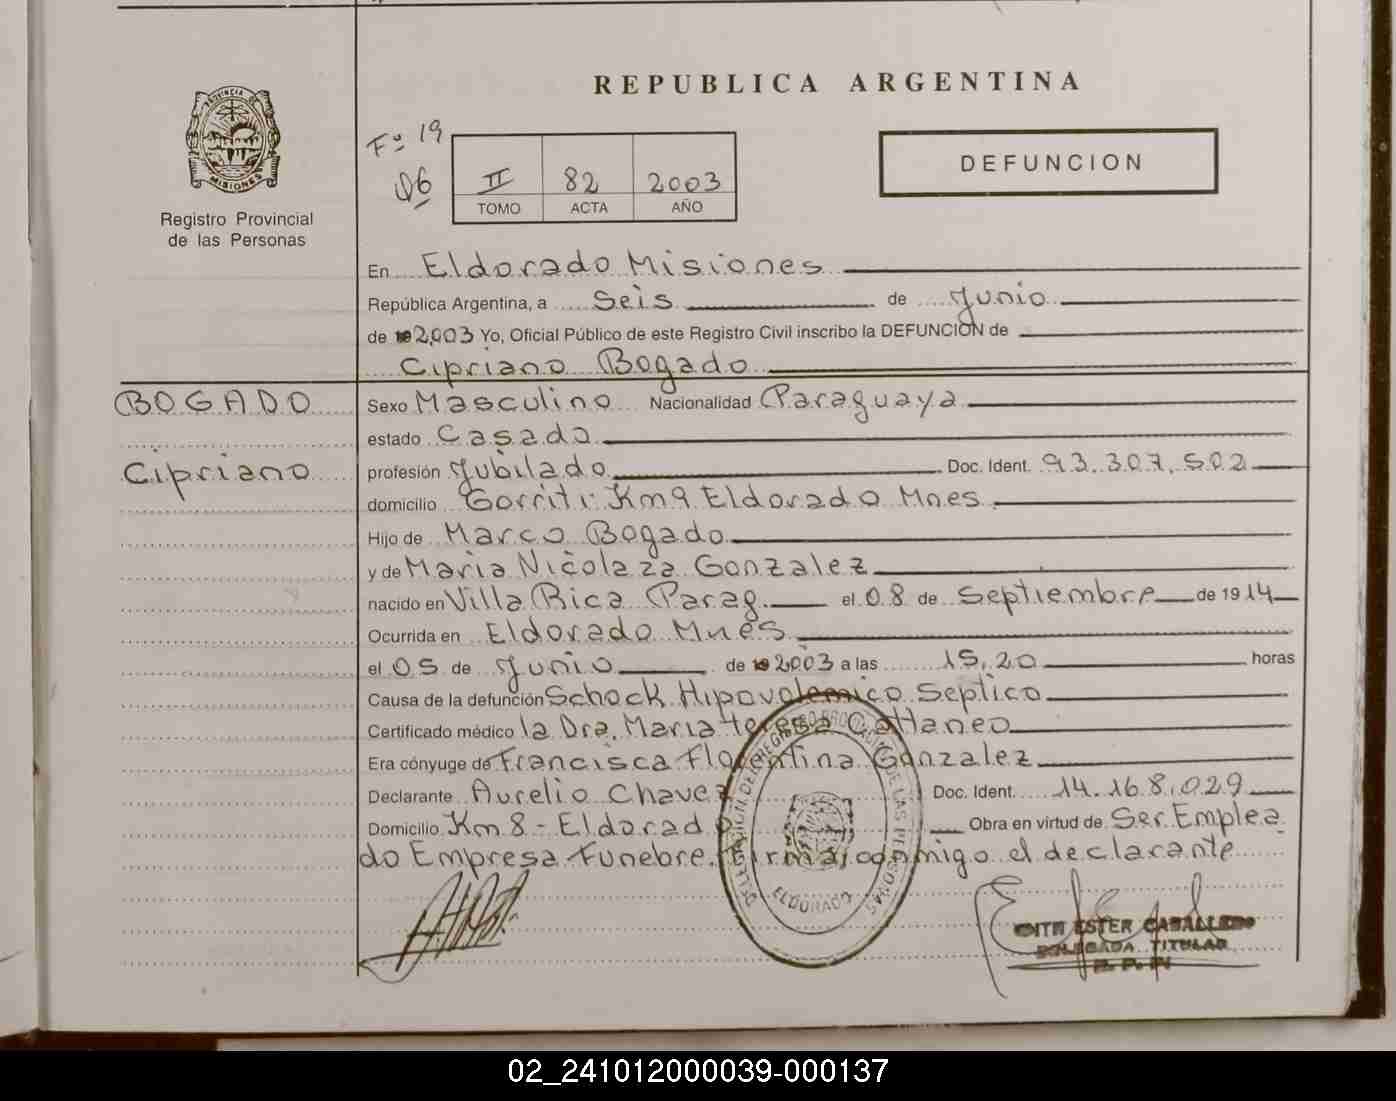 REPUBLICA ARGENTINA
PROVINCIA DE
MISIONES
Registro Provincial
de las Personas
Fº 19
06
II 82 2003
TOMO ACTA AÑO
DEFUNCION
En Eldorado Misiones
República Argentina, a Seis de Junio
de 2,003 Yo, Oficial Público de este Registro Civil inscribo la DEFUNCION de
Cipriano Bogado
BOGADO
Cipriano
Sexo Masculino Nacionalidad Paraguaya
estado Casado
profesión Jubilado Doc. Ident. 93.307.502
domicilio Gorriti Km 9 Eldorado Mnes
Hijo de Marco Bogado
y de Maria Nicolaza Gonzalez
nacido en Villa Rica Parag. el 08 de Septiembre de 1914
Ocurrida en Eldorado Mnes
el 05 de Junio de 2003 a las 15,20 horas
Causa de la defunción Schock Hipovolemico Septico
Certificado médico la Dra. Maria Teresa Cattaneo
Era cónyuge de Francisca Florentina Gonzalez
Declarante Aurelio Chavez Doc. Ident. 14.168.029
Domicilio Km 8 - Eldorado Obra en virtud de Ser Emplea
do Empresa Funebre. Firma conmigo el declarante
DELEGACION DEL REGISTRO PROVINCIAL DE LAS PERSONAS
ELDORADO
EDITH ESTER CABALLERO
DELEGADA TITULAR
R. P. P.
02_241012000039-000137